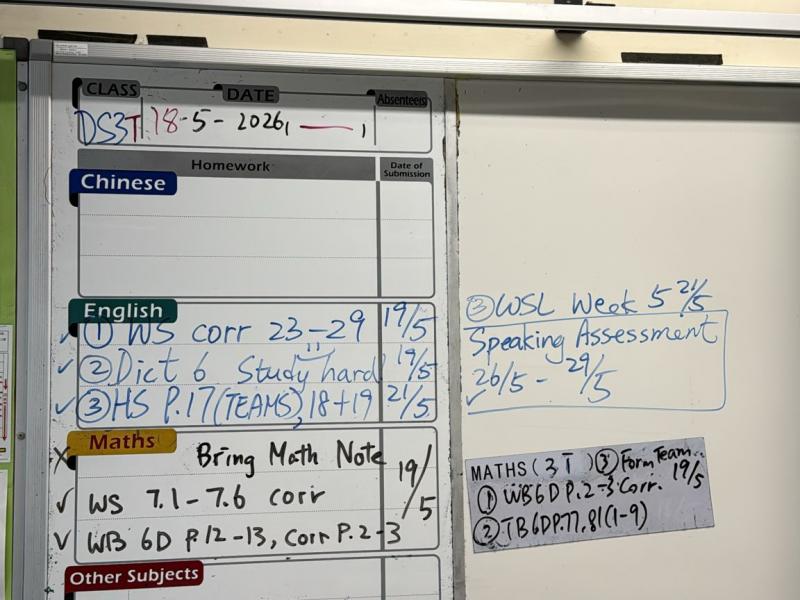 CLASS DATE Absentees
DS3T 18-5-2026, ——,
Homework Date of Submission
Chinese
English
① WS corr 23-29 19/5
② Dict 6 Study hard 19/5
③ HS P.17 (TEAMS), 18+19 21/5
Maths
Bring Math Note
WS 7.1-7.6 corr 19/5
WB 6D P.12-13, Corr P.2-3
Other Subjects
③ WSL Week 5 21/5
Speaking Assessment
26/5 - 29/5
MATHS (3T) ③ Form Team..
① WB6D P.2-3 Corr. 19/5
② TB6DP.77,81(1-9)